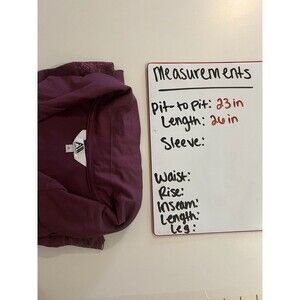 Measurements
Pit-to pit: 23 in
Length: 26 in
Sleeve:
Waist:
Rise:
Inseam:
Length:
Leg: